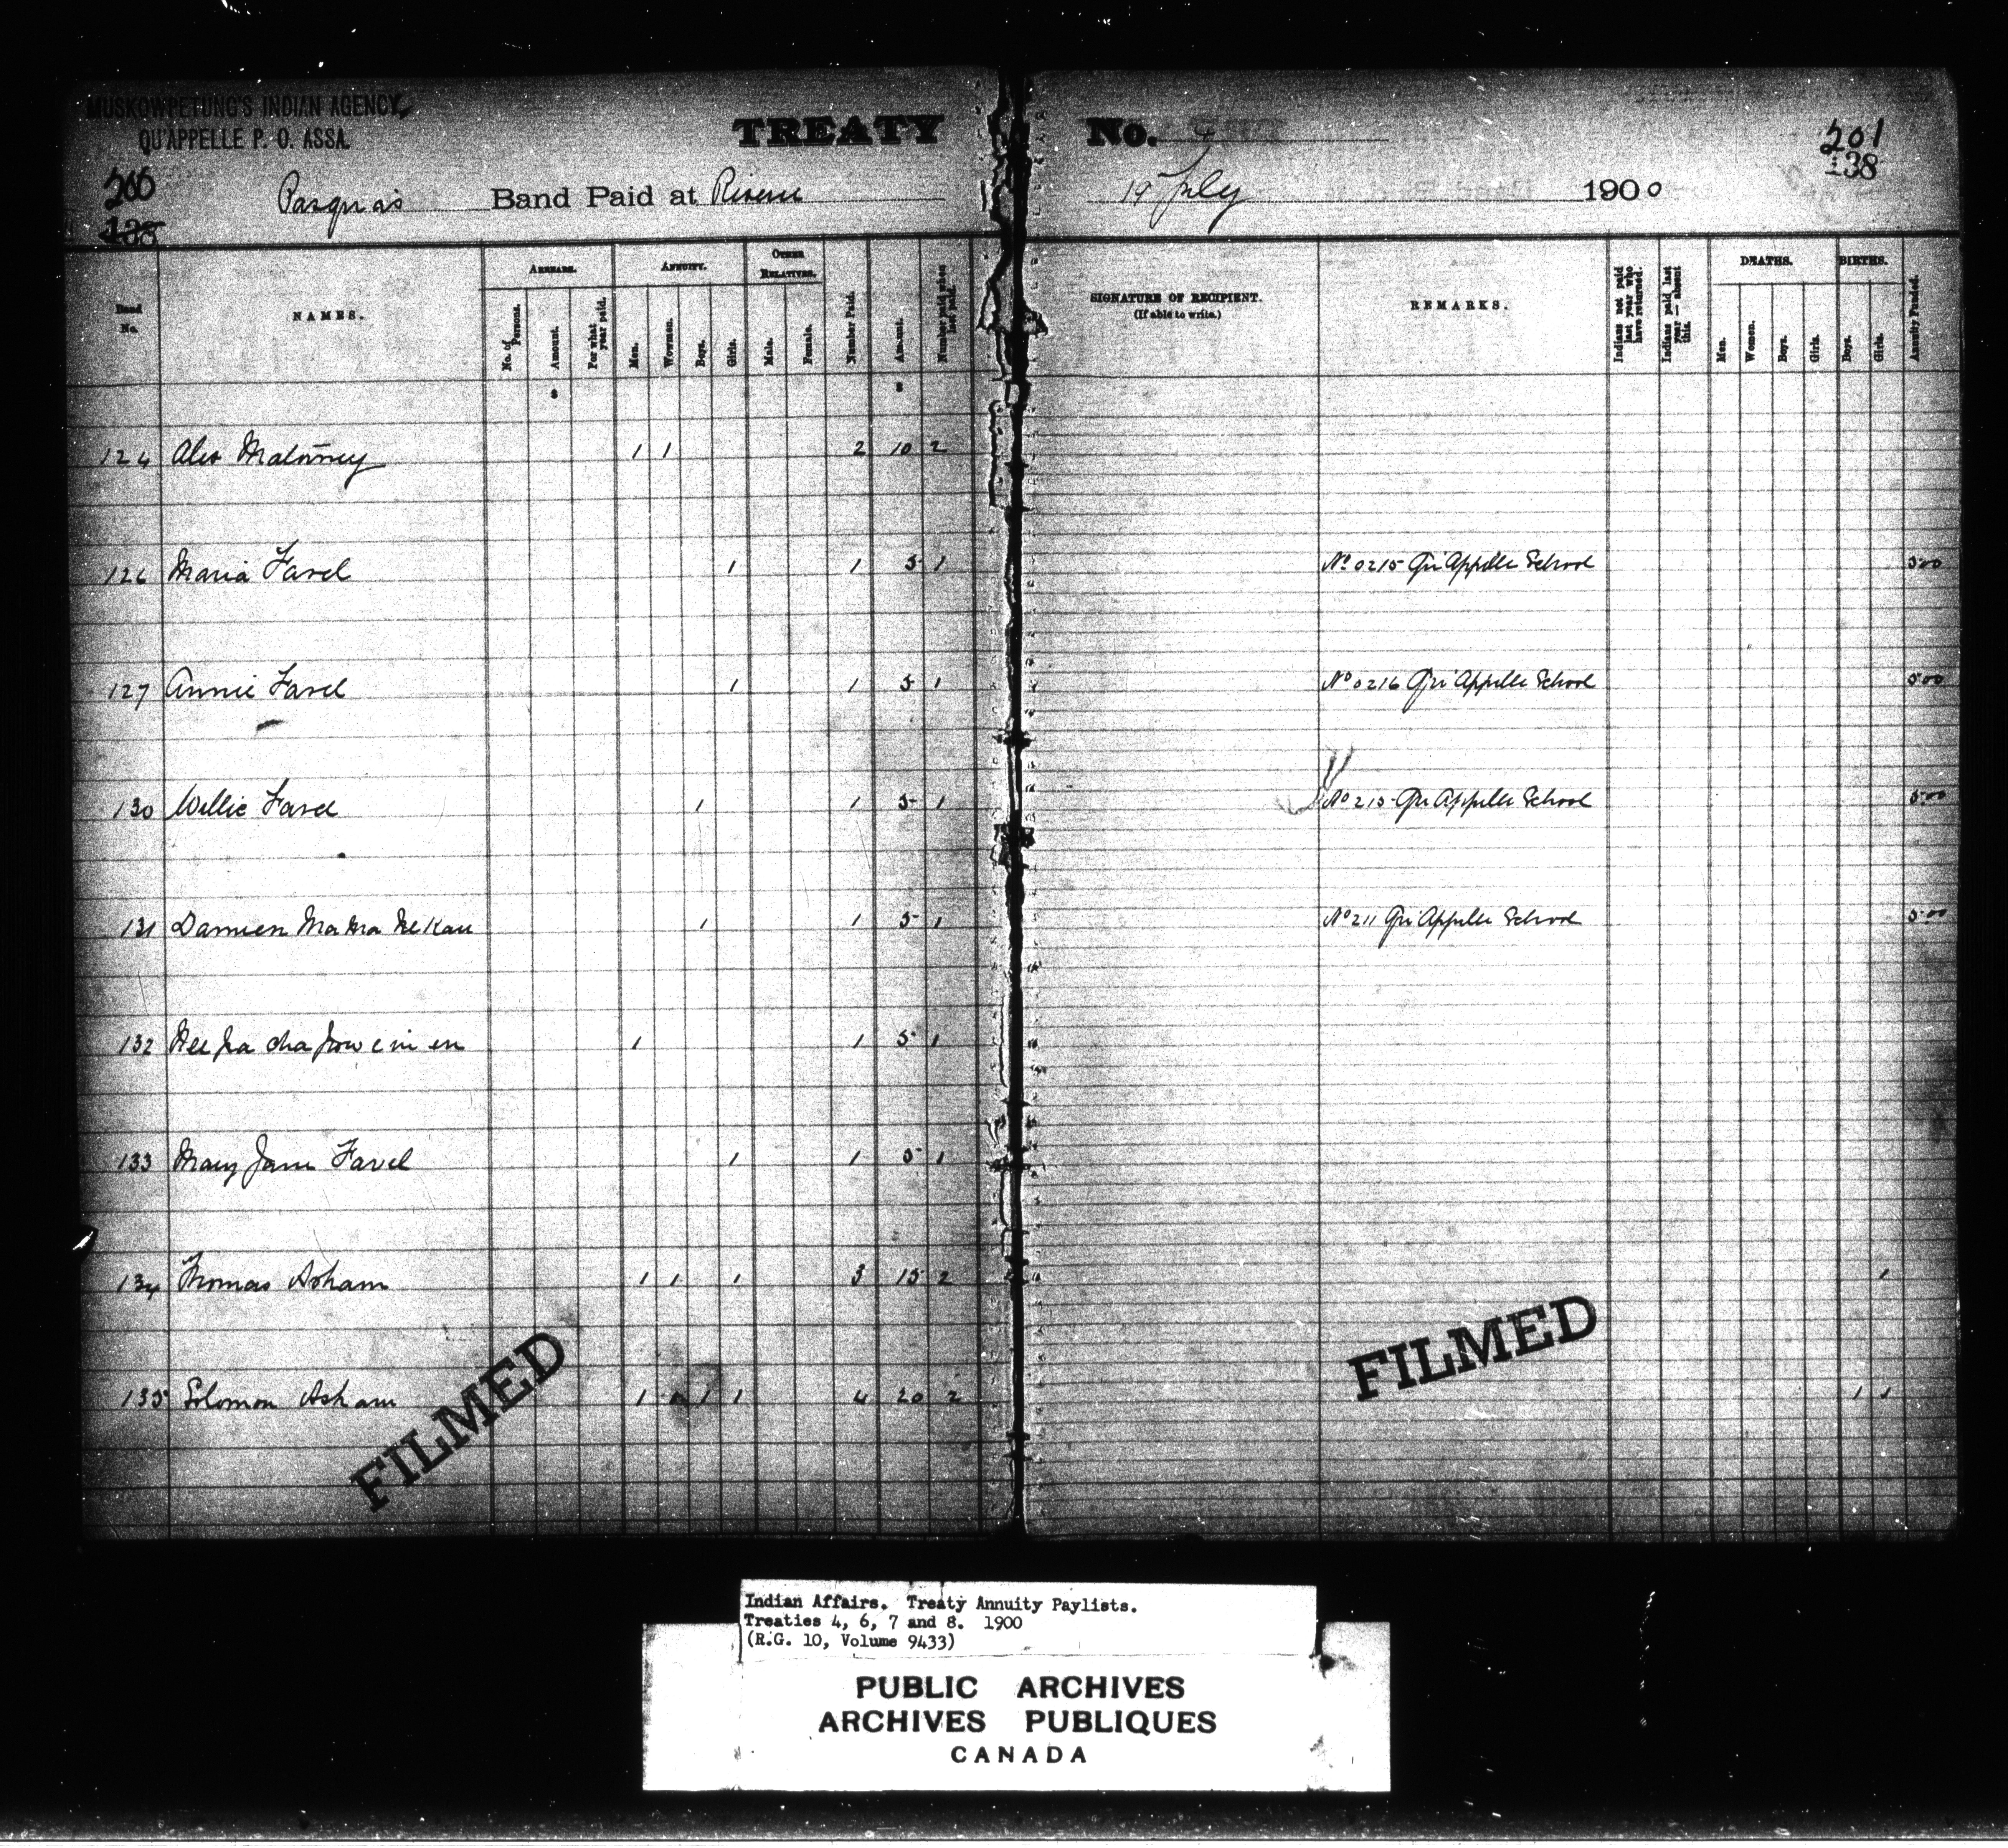 MUSKOWPETUNG'S INDIAN AGENCY,
QU'APPELLE P. O. ASSA.
TREATY No. 4
200
138
201
138
Pasqua's Band Paid at Reserve 19 July 1900
Band No.
NAMES.
ARREARS.
No. of Persons.
Amount.
For what year paid.
ANNUITY.
Men.
Women.
Boys.
Girls.
OTHER RELATIVES.
Male.
Female.
Number Paid.
Amount.
Number paid when last paid.
SIGNATURE OF RECIPIENT.
(If able to write.)
REMARKS.
Indians not paid last year who have returned.
Indians paid last year — absent this.
DEATHS.
Men.
Women.
Boys.
Girls.
BIRTHS.
Boys.
Girls.
Annuity Funded.
$ $
124 Alex 1 1 2 10 2
126 Maria Favel 1 1 5 1 No 0215 Qu'Appelle School 5 00
127 Annie Favel 1 1 5 1 No 0216 Qu'Appelle School 5 00
130 Willie Favel 1 1 5 1 No 215 Qu'Appelle School 5 00
131 Damien 1 1 5 1 No 211 Qu'Appelle School 5 00
132 1 1 5 1
133 Mary Jane Favel 1 1 5 1
134 Thomas Asham 1 1 1 3 15 2 1
135 Solomon Asham 1 1 1 1 4 20 2 1 1
FILMED
FILMED
Indian Affairs. Treaty Annuity Paylists.
Treaties 4, 6, 7 and 8. 1900
(R.G. 10, Volume 9433)
PUBLIC ARCHIVES
ARCHIVES PUBLIQUES
CANADA